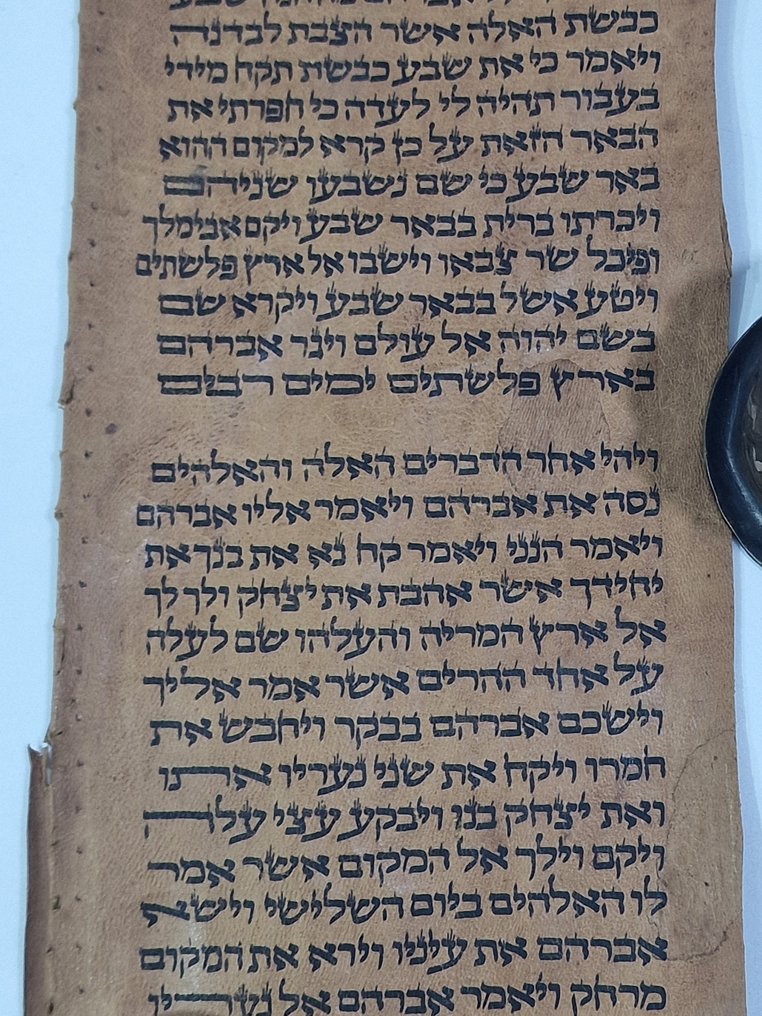 כבשת האלה אשר הצבת לבדנה
ויאמר כי את שבע כבשת תקח מידי
בעבור תהיה לי לעדה כי חפרתי את
הבאר הזאת על כן קרא למקום ההוא
באר שבע כי שם נשבעו שניהם
ויכרתו ברית בבאר שבע ויקם אבימלך
ופיכל שר צבאו וישבו אל ארץ פלשתים
ויטע אשל בבאר שבע ויקרא שם
בשם יהוה אל עולם ויגר אברהם
בארץ פלשתים ימים רבים
ויהי אחר הדברים האלה והאלהים
נסה את אברהם ויאמר אליו אברהם
ויאמר הנני ויאמר קח נא את בנך את
יחידך אשר אהבת את יצחק ולך לך
אל ארץ המריה והעלהו שם לעלה
על אחד ההרים אשר אמר אליך
וישכם אברהם בבקר ויחבש את
חמרו ויקח את שני נעריו אתו
ואת יצחק בנו ויבקע עצי עלה
ויקם וילך אל המקום אשר אמר
לו האלהים ביום השלישי וישא
אברהם את עיניו וירא את המקום
מרחק ויאמר אברהם אל נעריו